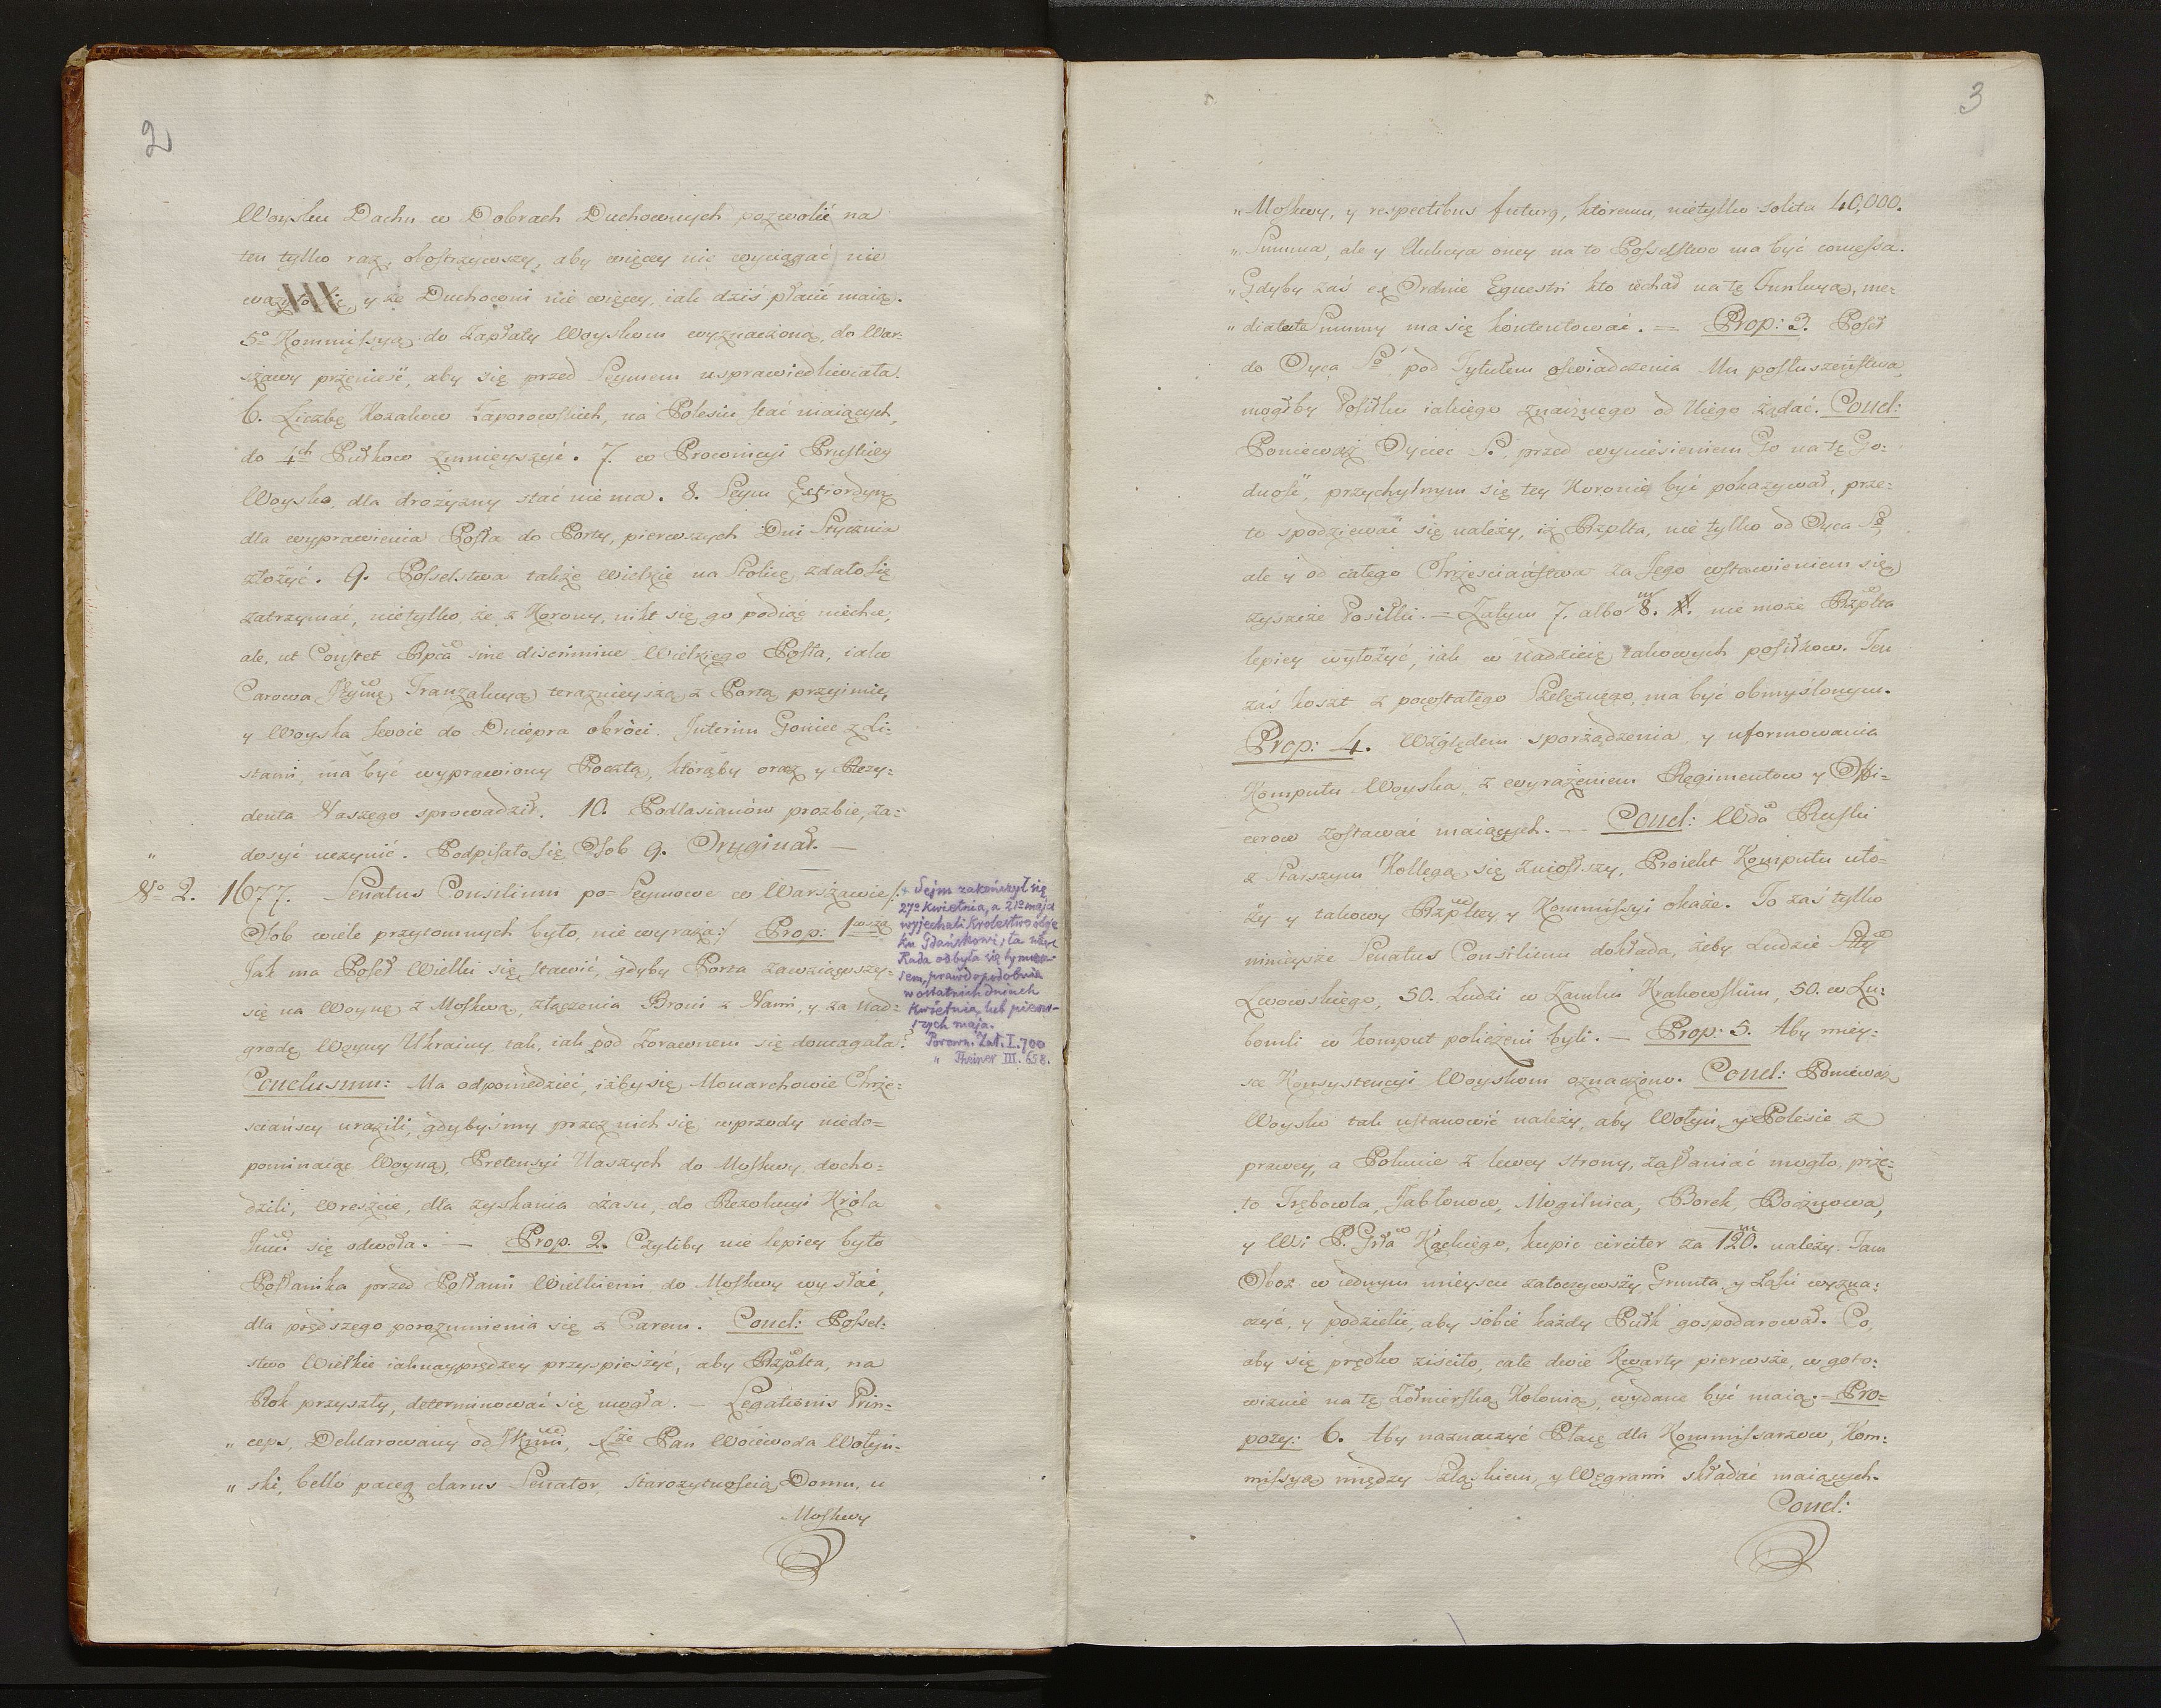 2
Woysku Dachu w Dobrach Duchownych pozwolić na
ten tylko raz, obostrzywszy, aby więcey nie wyciągać nie
y że Duchowni nie więcey, iak dziś płacić maią.
5o Kommissyą do Zapłaty Woyskom wyznaczoną, do War=
szawy przenieść, aby się przed Seymem usprawiedliwiała.
6. Liczbę Kozakow Zaporowskich, na Polesiu stać maiących,
do 4ch Pułkow zmnieyszyć. 7. w Prowincyi Pruskiey
Woysko, dla drożyzny stać nie ma. 8. Seym Extrordyn
dla wyprawienia Posła do Porty, pierwszych Dni Stycznia
złożyć. 9. Posselstwa także Wielkie na Stolicę zdało się
zatrzymać, nietylko, że z Korony, nikt się go podiąć niechce,
ale, ut Constet Rpca sine discrimine Wielkiego Posła, iako
Carowa Tranzakcyą teraznieyszą z Portą przyimie,
y Woyska swoie do Dniepra obróci. Interim Goniec z Li=
stami, ma być wyprawiony Pocztą, któryby oraz y Rezy=
denta Naszego sprowadził. 10. Podlasianów prozbie, za=
dosyć uczynić. Podpisało się Osob 9. Oryginał. —
No 2. 1677. Senatus Consilium po=Seymowe w Warszawie /:
Osob wiele przytomnych było, nie wyraża:/ Prop: 1wsza
Jak ma Poseł Wielki się stawić, gdyby Porta zawziąwszy=
się na Woynę z Moskwą, złączenia Broni z Nami, y za nad=
grodę Woyny Ukrainy tak, iak pod Żorawnem się domagała?
Conclusum: Ma odpowiedzieć, iżby się Monarchowie Chrze=
ściańscy urazili, gdybyśmy przez nich się wprzody niedo=
pominaiąc Woyną, Pretensyi Naszych do Moskwy docho=
dzili, wreszcie, dla zyskania czasu, do Rezolucyi Króla
Jmci się odwoła. — Prop. 2. Czyliby nie lepiey było
Posłanika przed Posłami Wielkiemi do Moskwy wysłać,
dla prędszego porozumienia się z Carem. Concl: Possel=
stwo Wielkie iaknayprędzey przyspieszyć, aby Rzplta, na
Rok przyszły, determinować się mogła. — Legationis Prin=
" ceps, Deklarowany od Pan Woiewoda Wołyn=
" ski, bello paceq clarus Senator, starożytnością Domu, u
Moskwy
+ Sejm zakończył się
27o kwietnia, a 21o maja
wyjechali Królestwo oboje
ku Gdańskowi; ta więc
Rada odbyła się tymcza-
sem, prawdopodobnie
w ostatnich dniach
kwietnia, lub pierw-
szych maja.
Porown. Zał. I. 700
" Theiner III. 658.
3
" Moskwy, y respectibus futurq, któremu, nietylko solita 40,000.
" Summa, ale y Aukcya oney na to Posselstwo ma być concessa.
" Gdyby zaś ex Ordine Equestri kto iechał na tę Funkcyą, me=
" diatate Summy ma się kontentować. = Prop: 3. Poseł
do Oyca So pod Tytułem oświadczenia Mu posłuszeństwa,
mogłby Posiłku iakiego znacznego od Niego żądać. Concl:
Ponieważ Oyciec S., przed wyniesieniem Go na tę Go=
dność, przychylnym się tey Koronie być pokazywał, prze=
to spodziewać się należy, iż Rzplta, nie tylko od Oyca So,
ale y od całego Chrześciaństwa za Jego wstawieniem się,
zyszcze Posiłki. = Zatym 7. albo 8. nie może Rzplta
lepiey wyłożyć, iak w nadzieię takowych posiłkow. Ten
zaś koszt z pozostałego Szelężnego, ma być obmyślonym.
Prop: 4. Względem sporządzenia y uformowania
Komputu Woyska, z wyrażeniem Regimentow y Offi=
cerow zostawać maiących. — Concl: Wda Ruski
z Starszym Kollegą się zniosłszy, Proiekt Komputu uło=
ży y takowy Rzpltey y Kommissyi okaże. To zaś tylko
ninieysze Senatus Consilium dokłada, żeby Ludzie
Lwowskiego, 50. Ludzi w Zamku Krakowskim, 50. w Lu=
bomli w komput policzeni byli. — Prop: 5. Aby miey=
sce Konsystencyi Woyskom oznaczono. Concl: Ponieważ
Woysko tak ustanowić należy, aby Wołyń, y Polesie z
prawey, a Pokucie z lewey strony, zasłaniać mogło, prze=
to Trębowla, Jabłonow, Mogilnica, Borek, Bocznowa,
y Wi P. Grła Kąckiego, kupić circiter za 120.m należy. Tam
Oboz w iednym mieyscu zatoczywszy, Grunta, y Lasy wyzna=
czyć, y podzielić, aby sobie każdy Pułk gospodarował. Co,
aby się prędko ziściło, całe dwie Kwarty pierwsze, w goto=
wiznie na tę Żołnierską Kolonią, wydane być maią. — Pro=
pozy: 6. Aby naznaczyć Płacę dla Kommissarzow, Kom=
missyą między Szląskiem, y Węgrami składać maiących.
Concl: